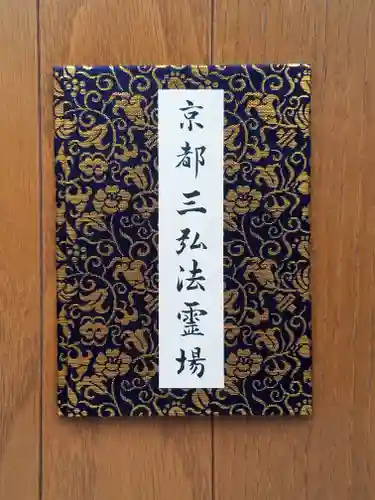 京都三弘法霊場